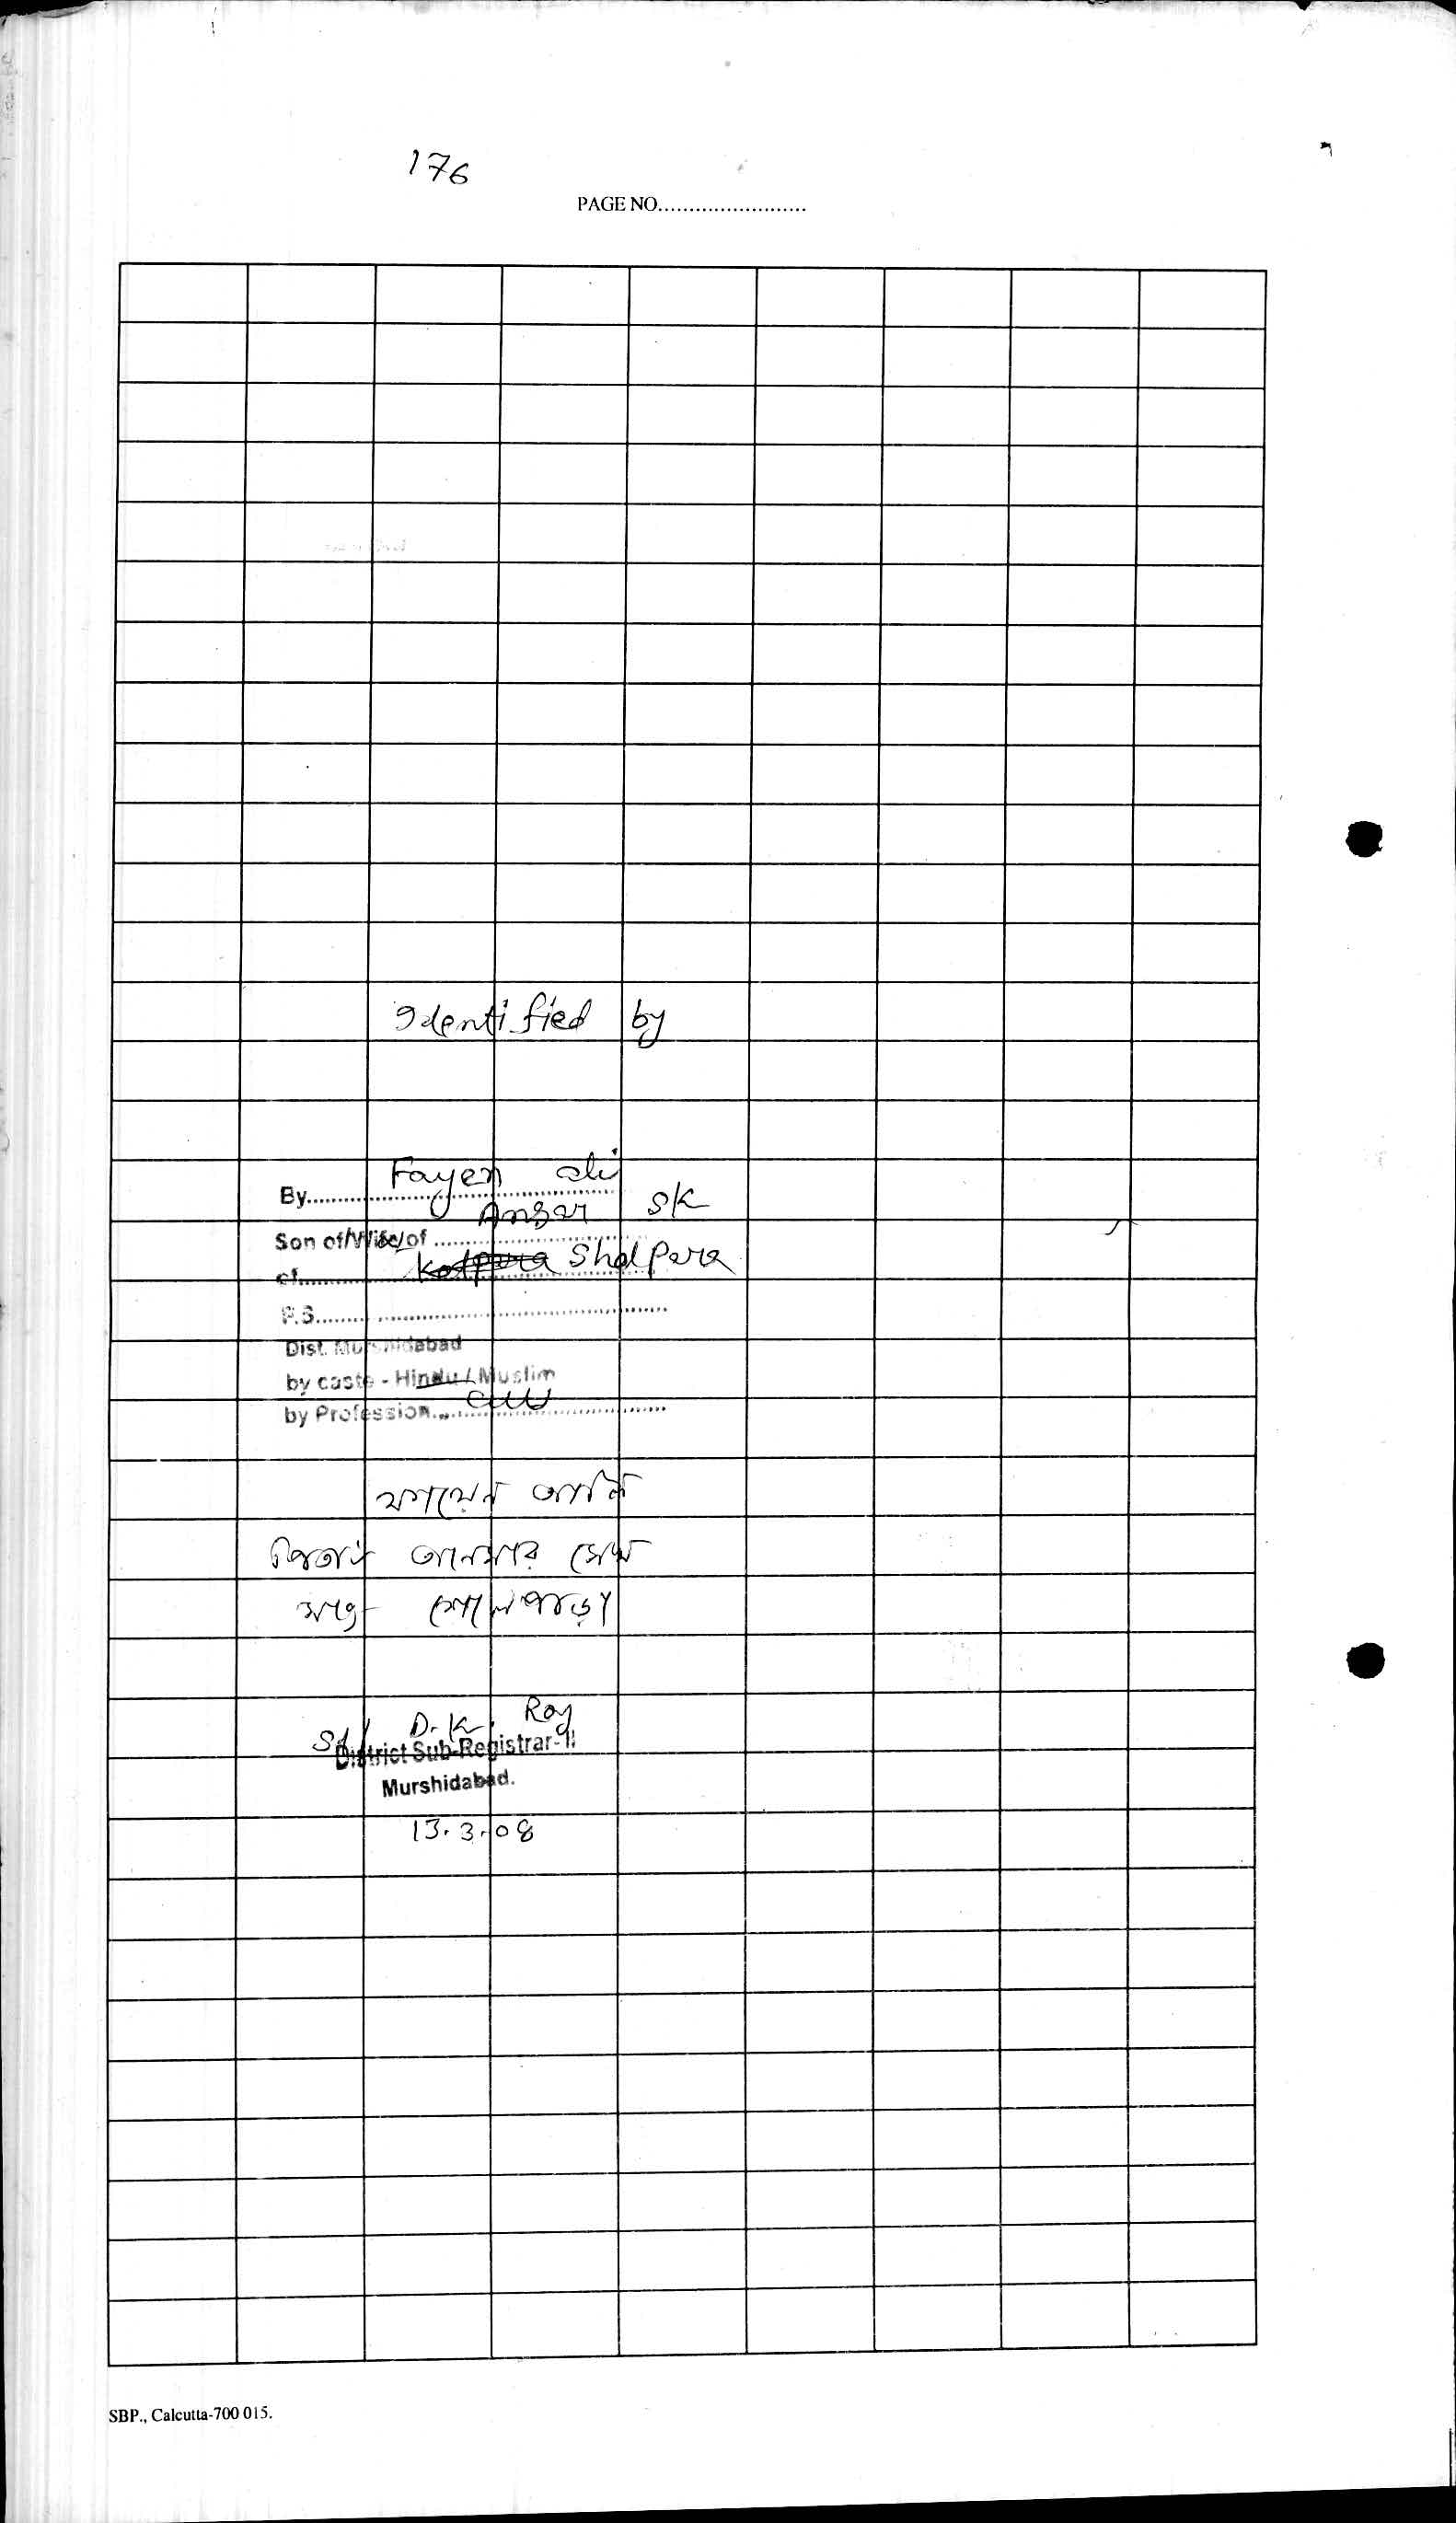 176
PAGE NO........................
Identified by
By Fayen Ali
Son of/Wife/of Ansar SK
of Kotpara Sholpara
P.S.
Dist. Murshidabad
by caste - Hindu / Muslim
by Profession
ফায়েন আলি
পিতা আনসার সেখ
সাং শোলপাড়া
Sd/ D. K. Roy
District Sub-Registrar-II
Murshidabad.
13.3.08
SBP., Calcutta-700 015.